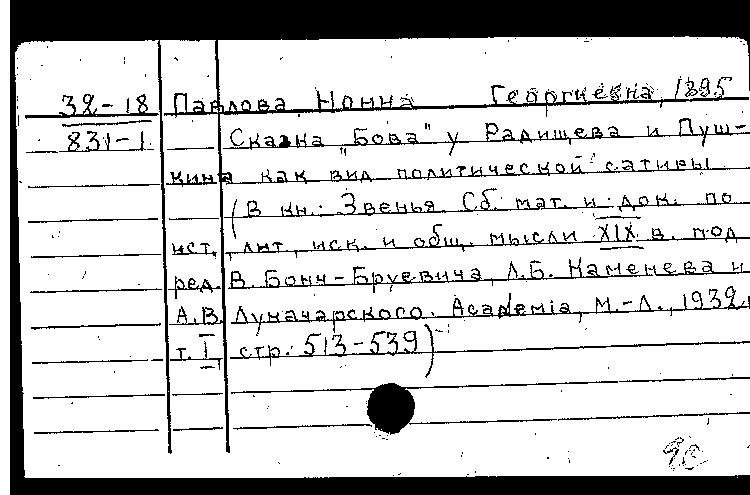 32-18 Павлова Нонна Георгиевна, 1895
831-1 Сказка „Бова" у Радищева и Пуш-
кина как вид политической сатиры
(В кн.: Звенья. Сб. мат. и док. по
ист., лит., иск. и общ. мысли XIX в. под
ред. В. Бонч-Бруевича, Л.Б. Каменева и
А.В. Луначарского. Academia, М.-Л., 1932,
т. I, стр. 513-539)